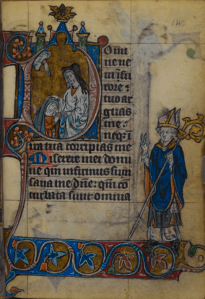 Domi
ne ne
in fu
rore
tuo ar
guas
me:
neq in
ira tua corripias me
Miserere mei domi
ne qm̄ infirmus sum
sana me dn̄e: qm̄ cō
turbata sunt omnia